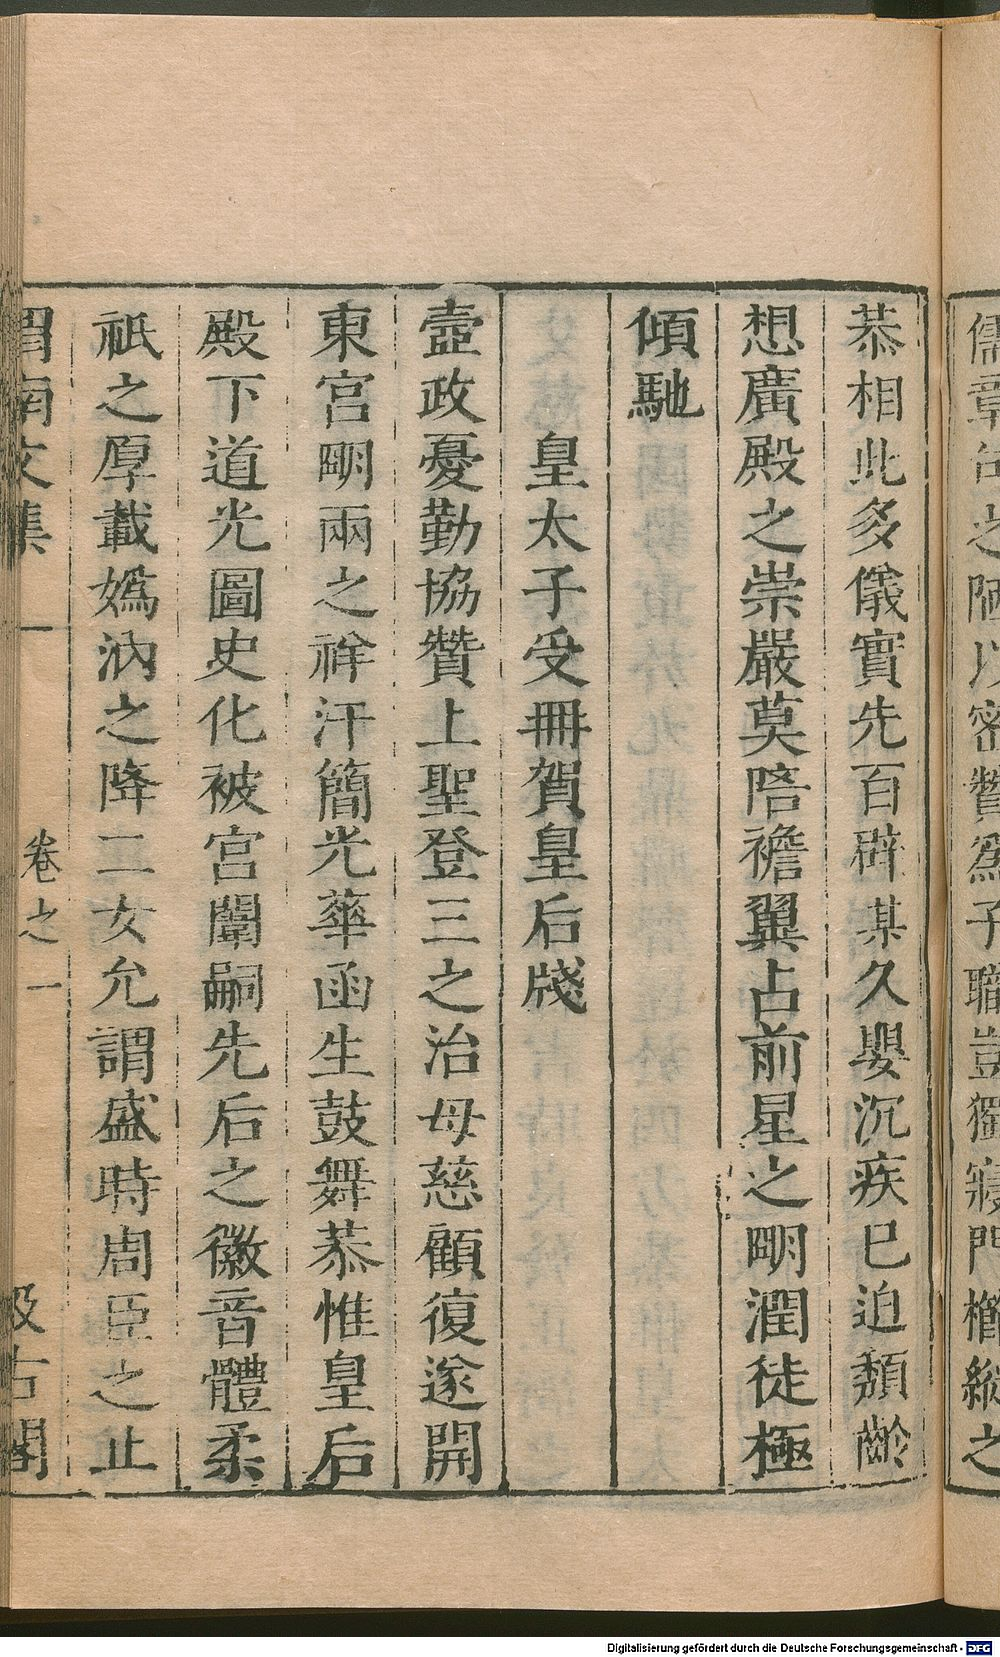 儒章句之陋以密贊爲子職豈獨寢門櫛縰之
恭相此多儀實先百辟某久嬰沉疾巳迫頽齡
想廣殿之崇嚴莫陪襜翼占前星之朙潤徒極
傾馳
皇太子受冊賀皇后牋
壼政憂勤協贊上聖登三之治母慈顧復遂開
東宮朙兩之祥汗簡光華函生鼓舞恭惟皇后
殿下道光圖史化被宮闈嗣先后之徽音體柔
祇之厚載嬀汭之降二女允謂盛時周臣之止
渭南文集 卷之一 汲古閣
Digitalisierung gefördert durch die Deutsche Forschungsgemeinschaft - DFG